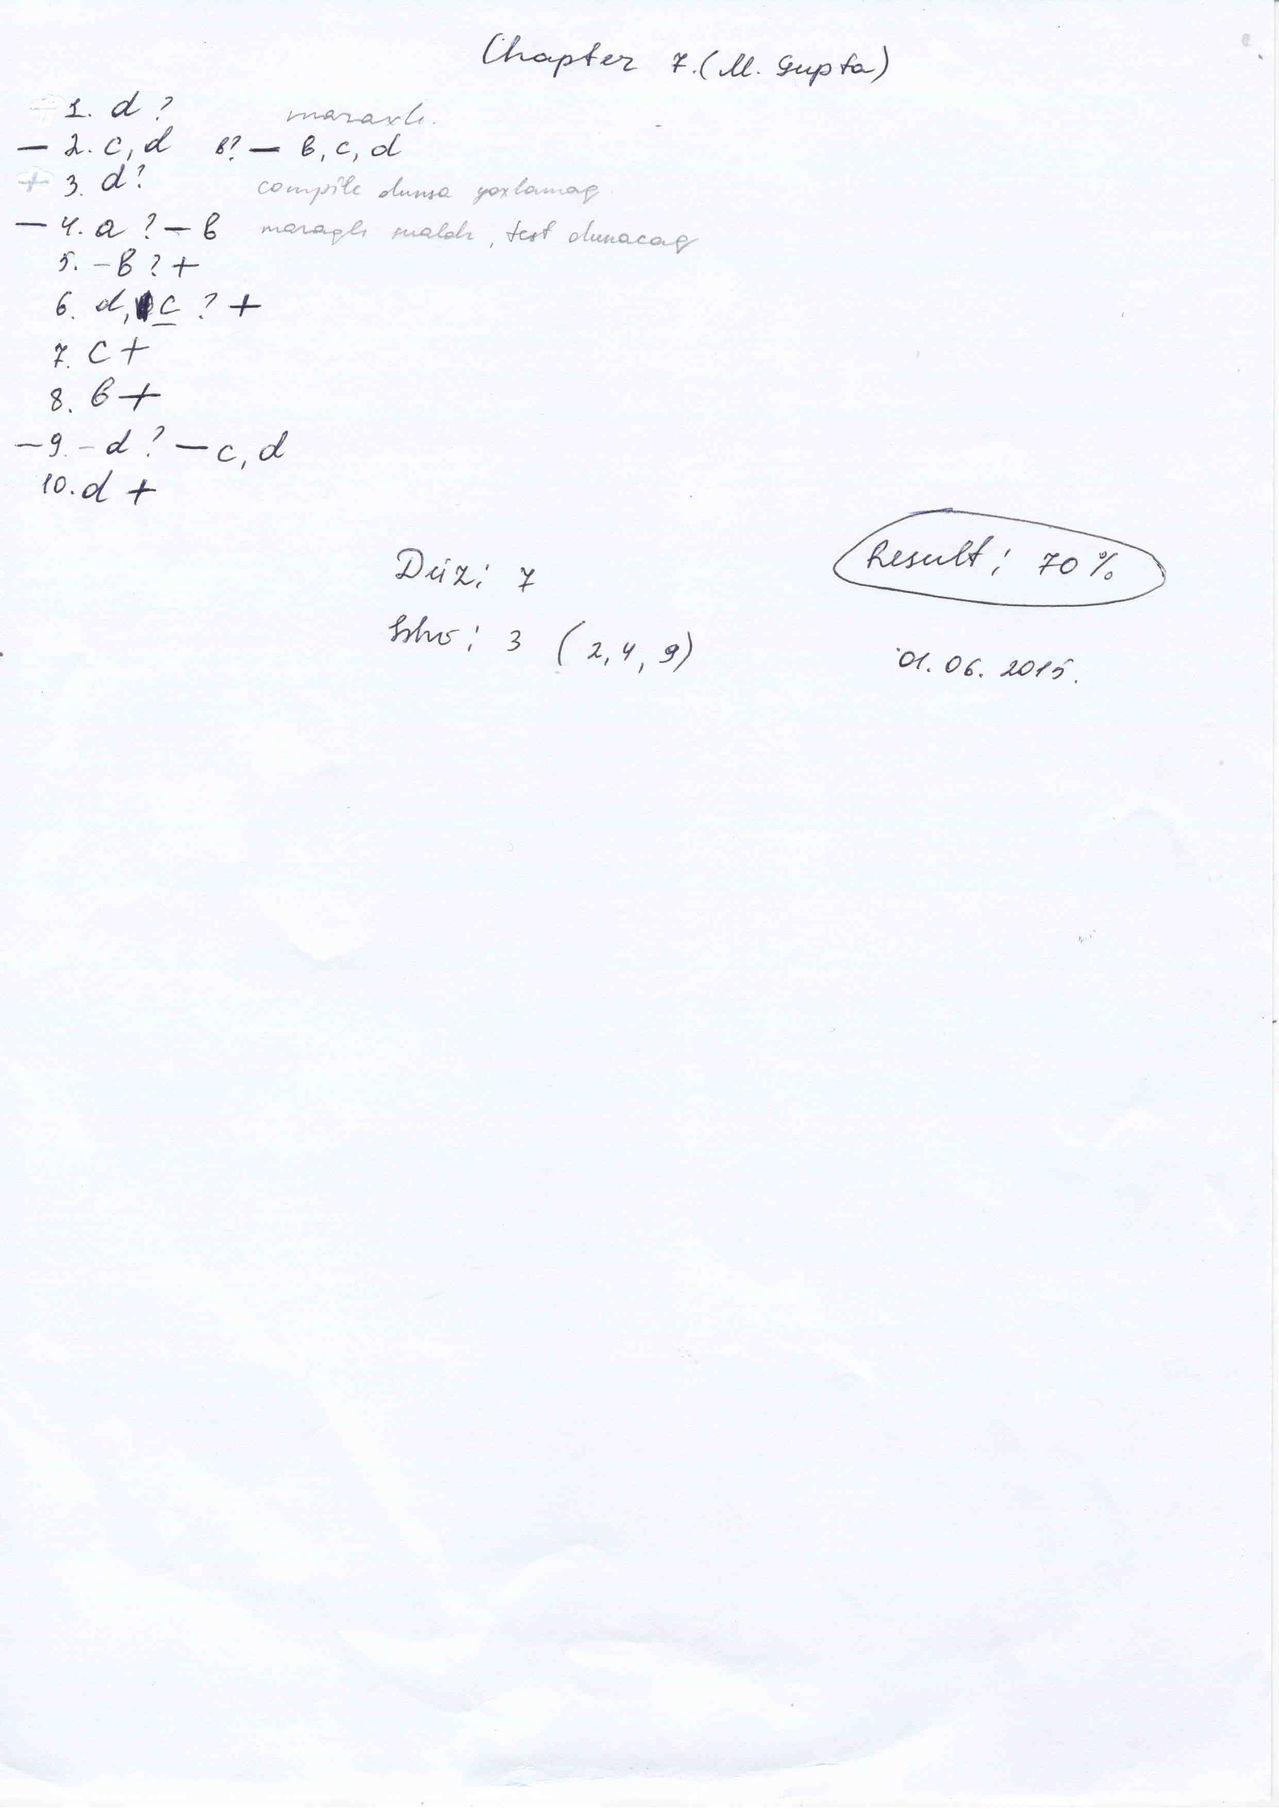 Chapter 7. (M. Gupta)
+ 1. d ? maraxlı.
— 2. c, d в? — в, c, d
+ 3. d? compile olunsa yoxlamag
— 4. a ? — в maraglı sualdı, test olunacag
5. – в ? +
6. d, c ? +
7. c +
8. в +
— 9. – d ? — c, d
10. d +
Result: 70%
Düz: 7
3 (2, 4, 9)
01. 06. 2015.